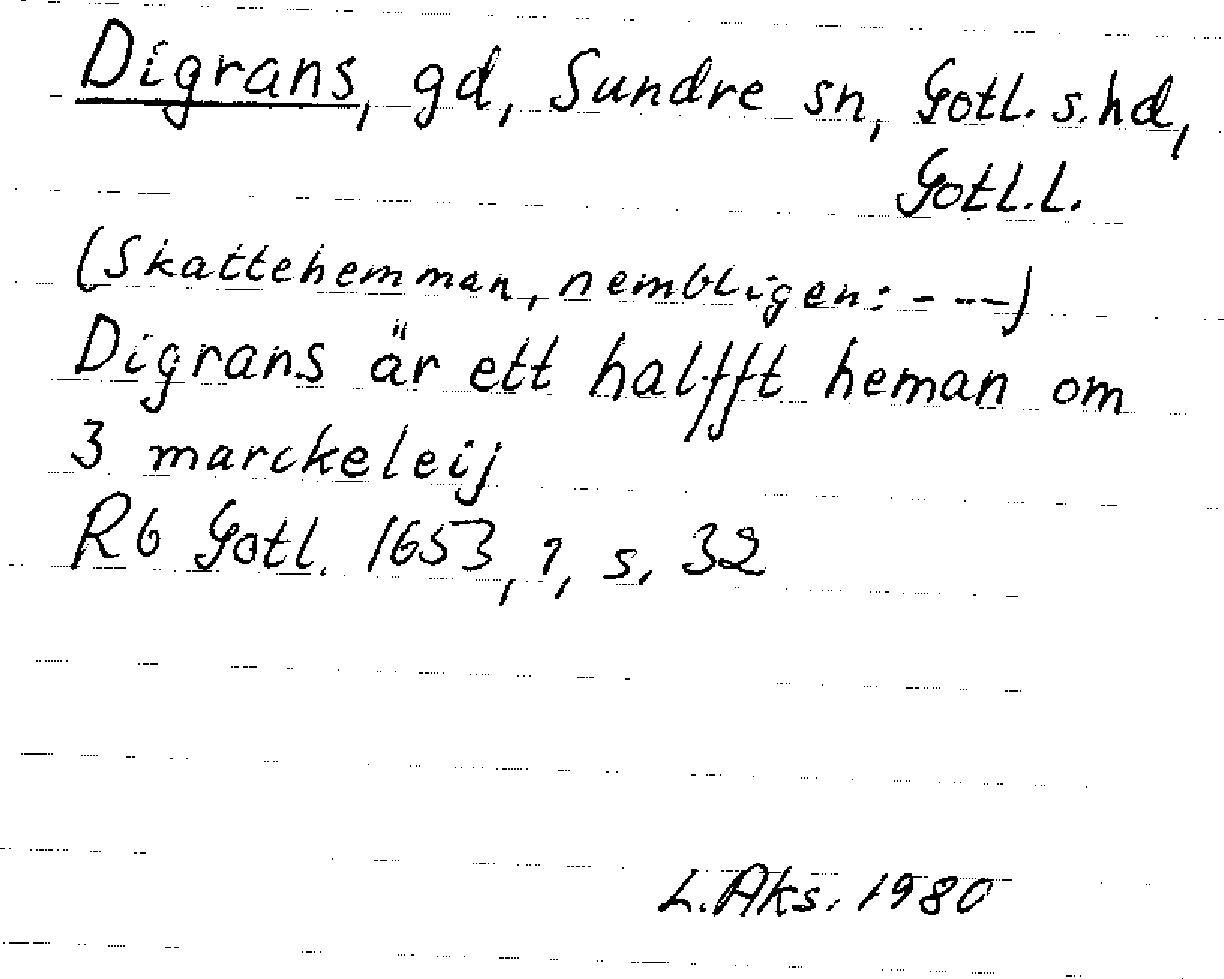 Digrans, gd, Sundre sn, Gotl. s. hd,
Gotl. l.
(Skattehemman, nembligen: - - -)
Digrans är ett halfft heman om
3 marckeleij
Rb Gotl. 1653, 1, s. 32
L. Aks. 1980